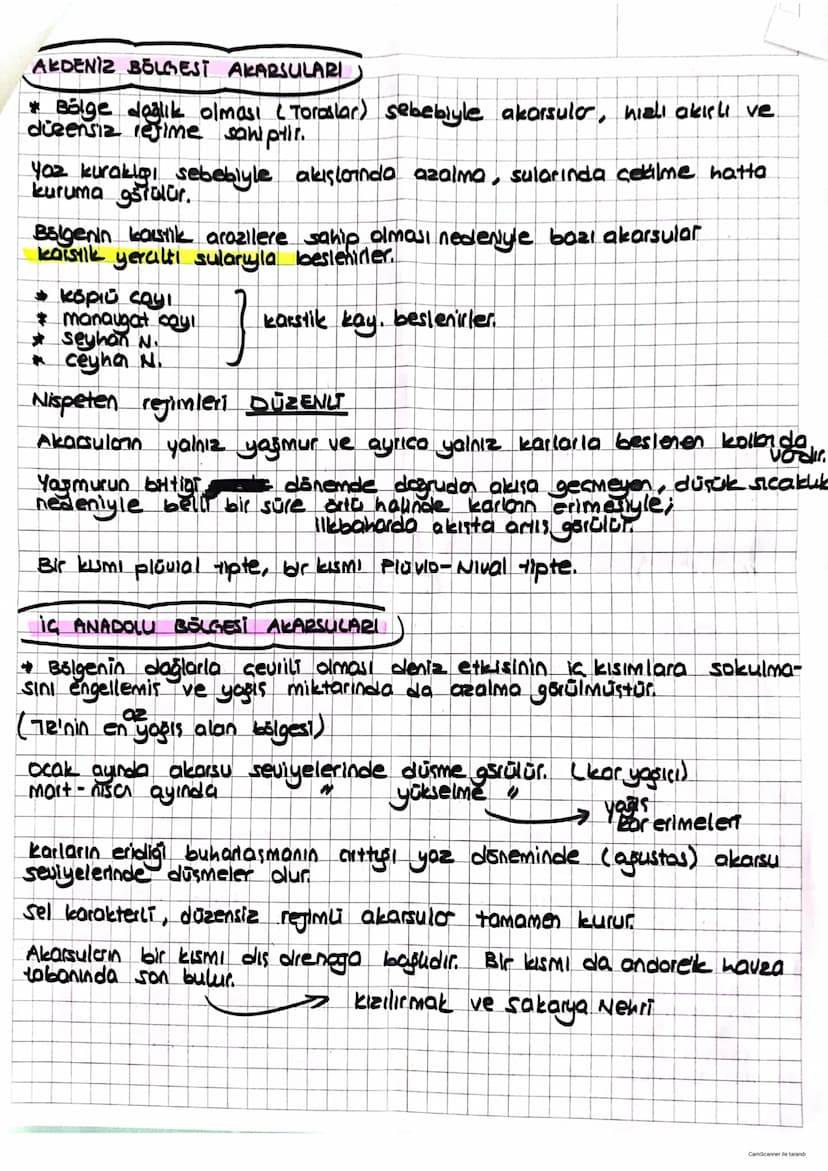 AKDENİZ BÖLGESİ AKARSULARI
* Bölge dağlık olması (Toroslar) sebebiyle akarsular, hızlı akışlı ve
düzensiz rejime sahiptir.
Yaz kuraklığı sebebiyle akışlarında azalma, sularında çekilme hatta
kuruma görülür.
Bölgenin karstik arazilere sahip olması nedeniyle bazı akarsular
karstik yeraltı sularıyla beslenirler.
* köprü çayı
* manavgat çayı
* seyhan N.
* ceyhan N.
karstik kay. beslenirler.
Nispeten rejimleri DÜZENLİ
Akarsuların yalnız yağmur ve ayrıca yalnız karlarla beslenen kolları da
vardır.
Yağmurun bittiği dönemde doğrudan akışa geçmeyen, düşük sıcaklık
nedeniyle belli bir süre örtü halinde karların erimesiyle;
ilkbaharda akışta artış görülür.
Bir kısmı plüvial tipte, bir kısmı Plüvio-Nival tipte.
İÇ ANADOLU BÖLGESİ AKARSULARI
* Bölgenin dağlarla çevrili olması deniz etkisinin iç kısımlara sokulma-
sını engellemiş ve yağış miktarında da azalma görülmüştür.
(TR'nin en az yağış alan bölgesi)
Ocak ayında akarsu seviyelerinde düşme görülür. (kar yağışı)
mart-nisan ayında " yükselme "
yağış
kar erimeleri
Karların eridiği buharlaşmanın arttığı yaz döneminde (ağustos) akarsu
seviyelerinde düşmeler olur.
Sel karakterli, düzensiz rejimli akarsular tamamen kurur.
Akarsuların bir kısmı dış drenaja bağlıdır. Bir kısmı da andoreik havza
tabanında son bulur.
Kızılırmak ve Sakarya Nehri
CamScanner ile tarandı